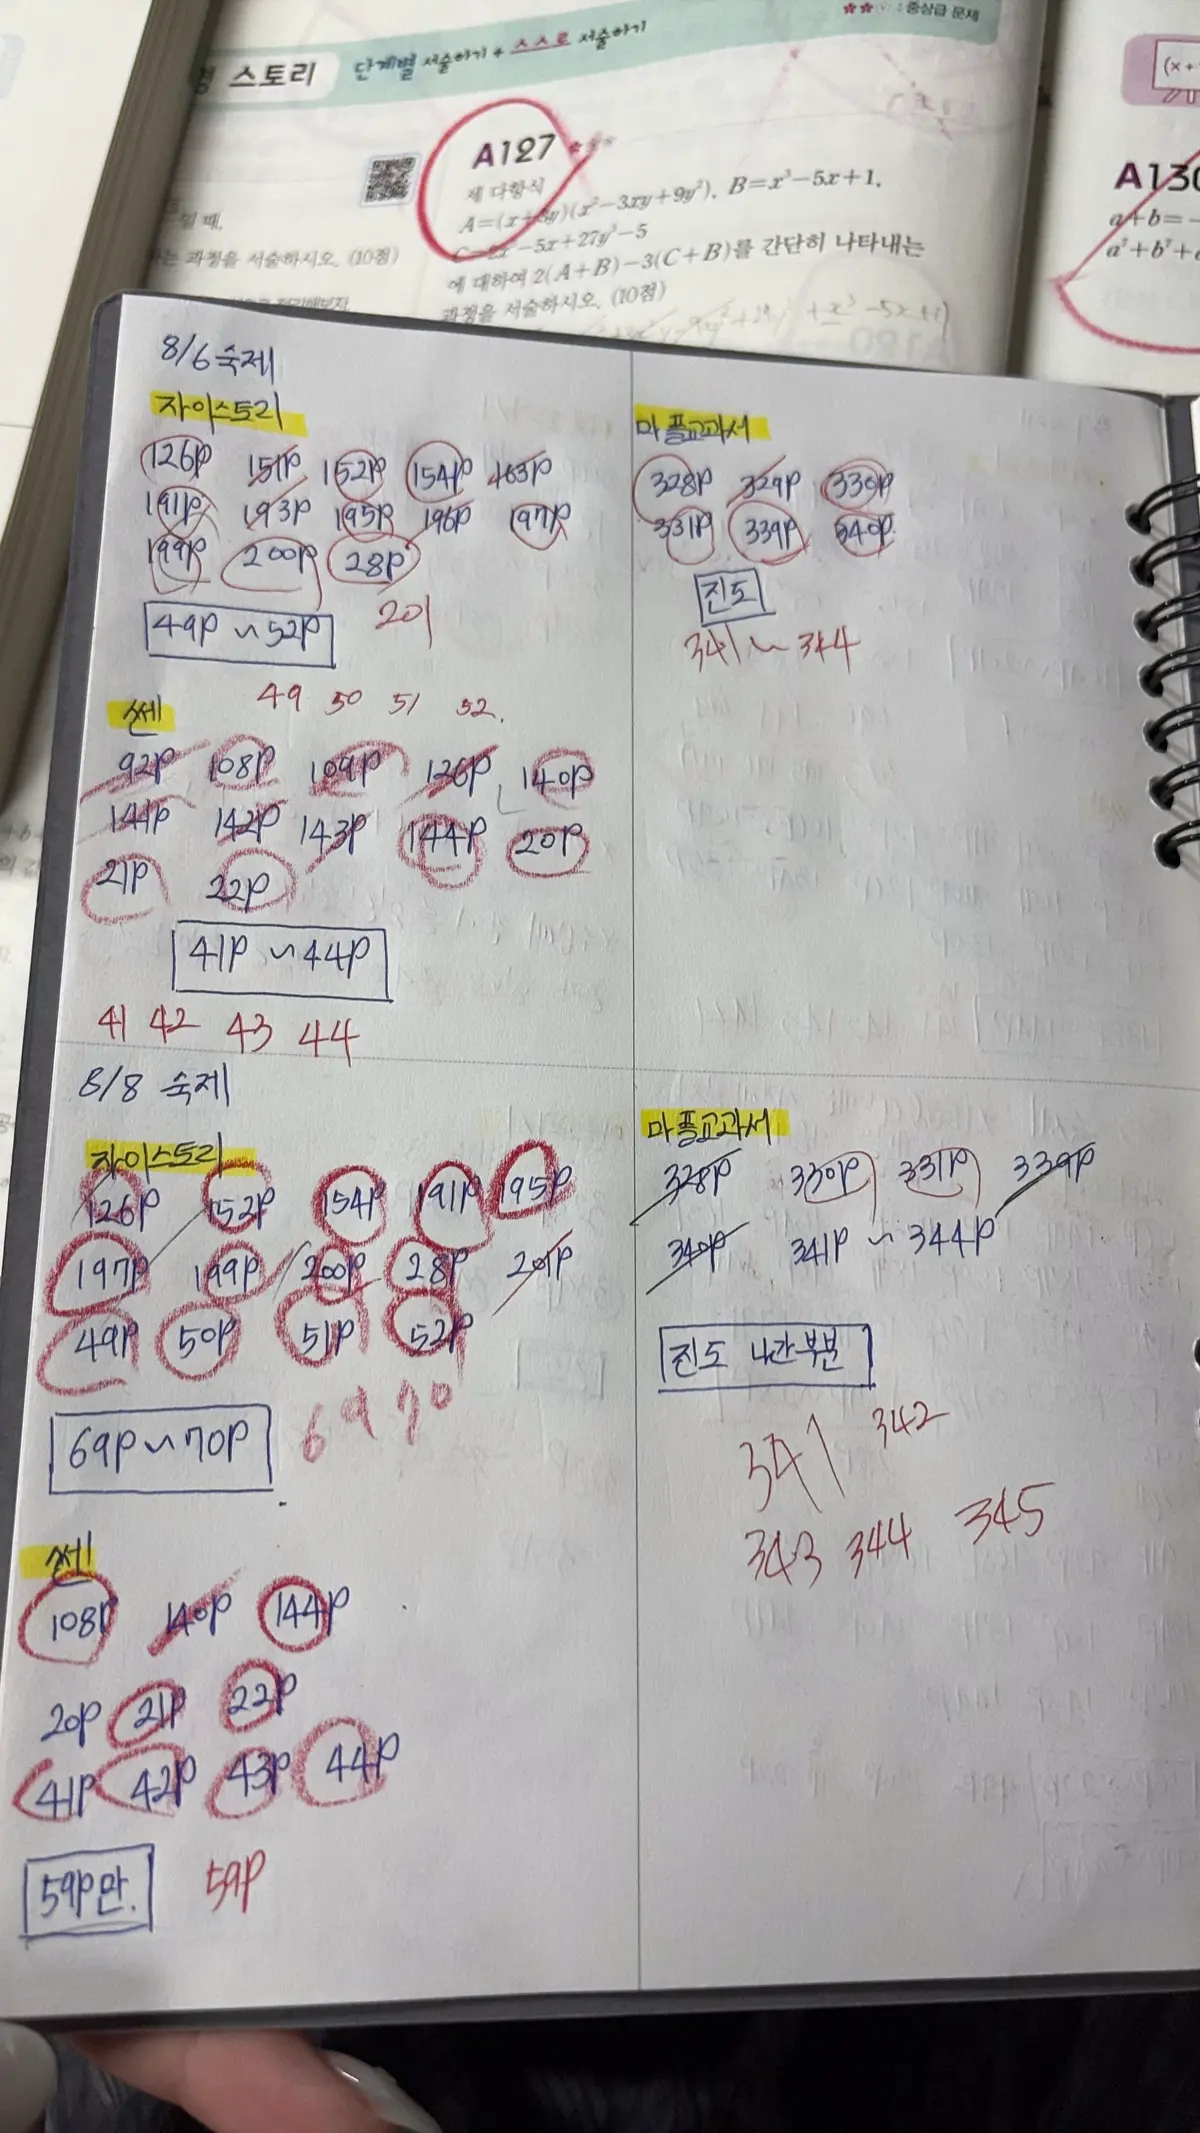 형 스토리 단계별 서술하기 + 스스로 서술하기
: 중상급 문제
A127
세 다항식
A=(x+3y)(x²-3xy+9y²), B=x³-5x+1,
-5x+27y³-5
에 대하여 2(A+B)-3(C+B)를 간단히 나타내는
과정을 서술하시오. (10점)
일 때,
는 과정을 서술하시오. (10점)
+x³-5x+1
(x+
A130
a+b=-
a²+b²+
8/6 숙제
자이스토리
126P 151P 152P 154P 163P
191P 193P 195P 196P 197P
199P 200P 28P
201
49P ~ 52P
49 50 51 52.
쎈
92P 108P 109P 126P 140P
141P 142P 143P 144P 20P
21P 22P
41P ~ 44P
41 42 43 44
마플교과서
328P 329P 330P
331P 339P 340P
진도
341 ~ 344
8/8 숙제
자이스토리
126P 152P 154P 191P 195P
197P 199P 200P 28P 201P
49P 50P 51P 52P
69P ~ 70P 69 70
쎈
108P 140P 144P
20P 21P 22P
41P 42P 43P 44P
59P만. 59P
마플교과서
328P 330P 331P 339P
340P 341P ~ 344P
진도 나간부분
341 342
343 344 345